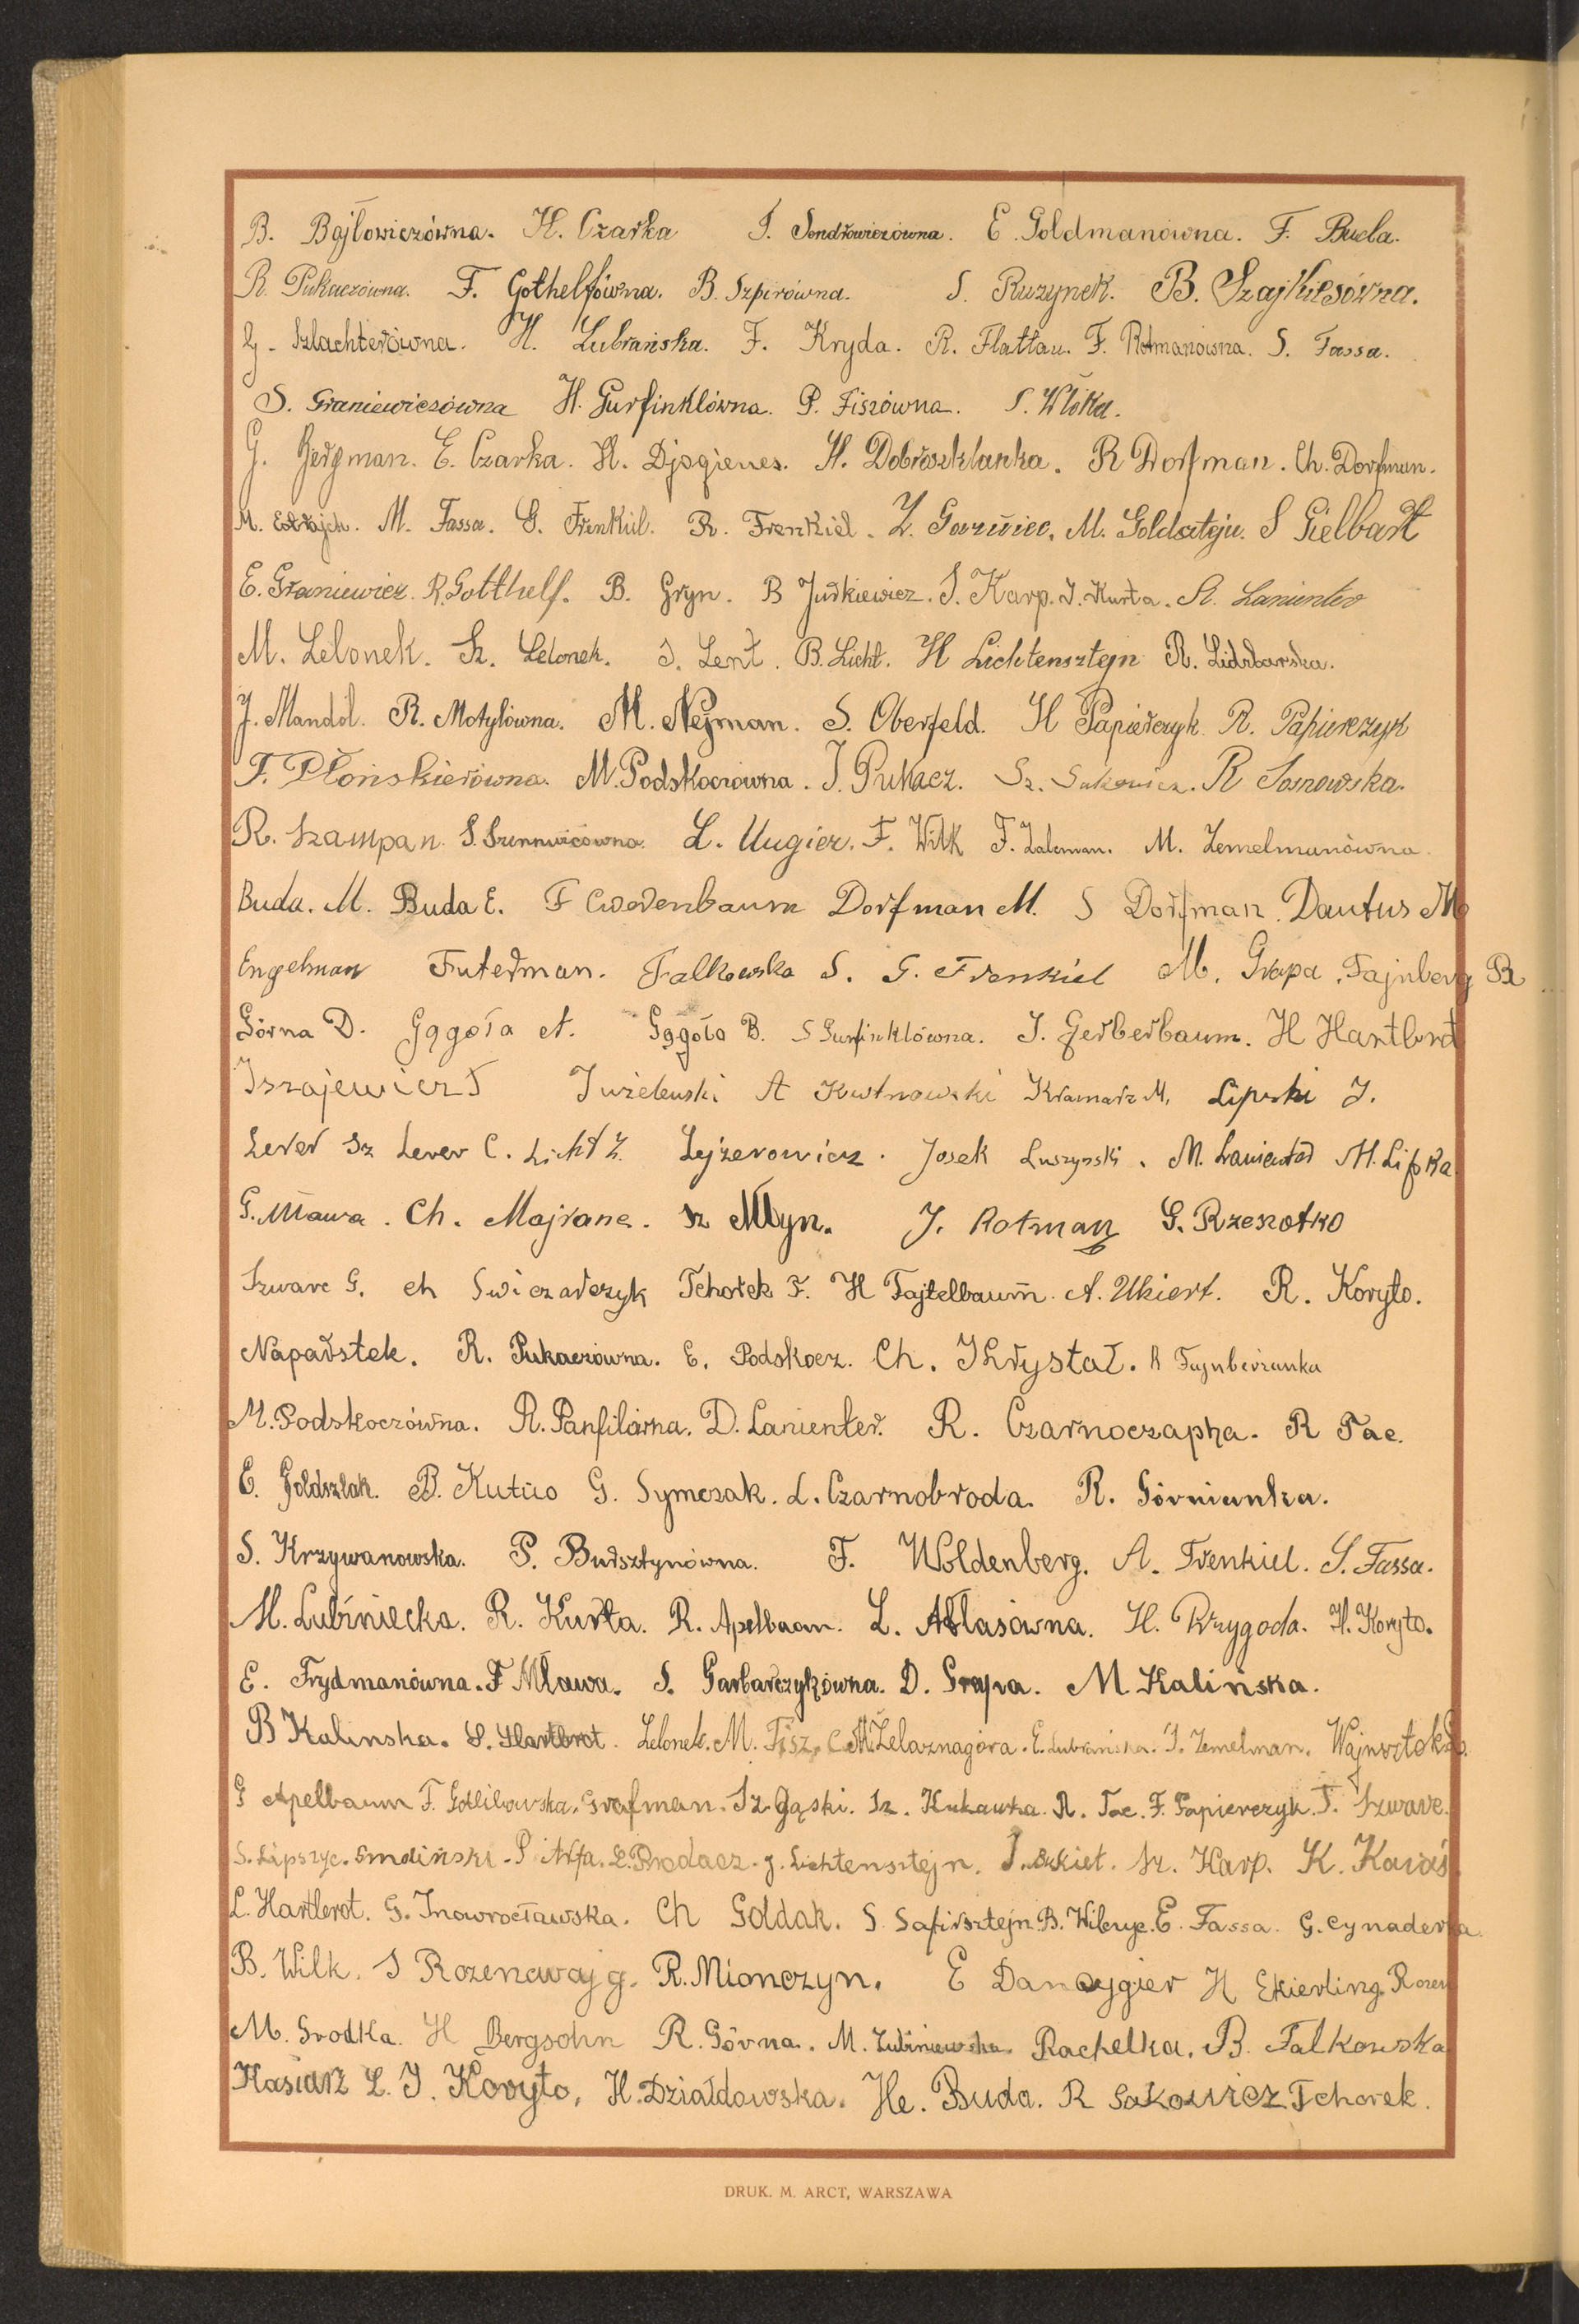 B. Bajłowiczówna. H. Czarka J. Sendrowiczówna. E. Goldmanówna. F. Buda.
R. Pukaczówna. F. Gothelfówna. B. Szpirówna. S. Ruzynek. B. Szajkiesówna.
G. Szlachterówna. H. Lubrańska. F. Kryda. R. Flattau. F. Rotmanówna. S. Fassa.
S. Graniewiczówna H. Gurfinklówna. P. Fiszówna. S. Włóka.
G. Bergman. E. Czarka. H. Djogienes. H. Dobroszklanka. R Dorfman. Ch. Dorfman.
M. M. Fassa. G. Frenkiel. R. Frenkiel. M. S Gielbart
E. Graniewicz. R. Gotthelf. B. Gryn. B Jurkiewicz. S. Karp. J. Kurta. R. Lanienter
M. Lelonek. Sz. Lelonek. S. Lent. B. Licht. H Lichtensztejn R. Lidzbarska.
J. Mandel. R. Motylówna. M. Nejman. S. Oberfeld. H Papierczyk. R. Papierczyk
F. Płońskierówna. M. Podskoczówna. J. Pukacz. Sz. Sakowicz. R Sosnowska.
R. Szampan. S. L. Ungier. F. Wilk F. Zalcman. M. Zemelmanówna.
Buda. M. Buda E. F Cwerenbaum Dorfman M. S Dorfman. Dantus M
Engelman Futerman. Falkowska S. G. Frenkiel M. Grapa. Fajnberg R
Górna D. Gągoła A. Gągoła B. S Gurfinklówna. J. Gerberbaum. H Hartbrot
Iszajewicz J Iwżelewski A Kutnowski Kramarz M. Lipski J.
Lerer Sz Lerer C. Licht Z. Lejzerowicz. Josek Luszynski. M. Lanienter M. Lipka.
G. Mława. Ch. Majranc. Sz Młyn. J. Rotman G. Rzeszotko
Szwarc G. Ch Swiczarczyk Tchorek F. H Tajtelbaum. A. Ukiert. R. Koryto.
Naparstek. R. Pukaczówna. E. Podskocz. Ch. Khrystał. R Fajnberżanka
M. Podskoczówna. R. Panfilarna. D. Lanienter. R. Czarnoczapka. R Tac.
E. Goldszlak. B. Kutno G. Symczak. L. Czarnobroda. R. Górnianka.
S. Krzywanowska. P. Bursztynówna. F. Woldenberg. A. Frenkiel. S. Fassa.
M. Lubiniecka. R. Kurta. R. Apelbaom. L. Atlasówna. H. Przygoda. H. Koryto.
E. Frydmanówna. F Mława. S. Garbarczykówna. D. Grapa. M. Kalińska.
B Kalinska. S. Hartbrot. Lelonek. M. Fisz. C. M. Żelaznagóra. E. Lubrańska. J. Zemelman. Wajnsztok
G Apelbaum F. Gotlibowska. Grafman. Sz. Gąski. Sz. Kukawka. R. Tac. F. Papierczyk. F. Szwarc.
S. Lipszyc. Smoliński. P Arfa. L. Prodacz. J. Lichtensztejn. Sz. Karp. K. Kawaś
L. Hartbrot. G. Inowrocławska. Ch Goldak. S. Safirsztejn. B. Wilczyc. E. Fassa. G. Cynaderka.
B. Wilk. S Rozencwajg. R. Mionczyn. E Dancygier H Ekierling. Rozen
M. Srodka. H Bergsohn R. Górna. M. Lubiniewska. Rachelka. B. Falkowska
Kasiarz L. J. Koryto. H. Działdowska. He. Buda. R Sakowicz Tchorek.
DRUK. M. ARCT, WARSZAWA